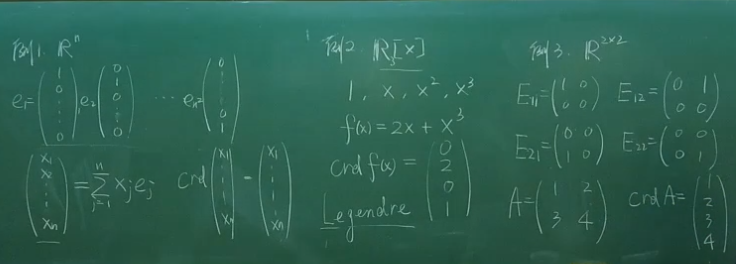 例1. ℝⁿ
e₁=(1 0 0 ⋮ 0), e₂(0 1 0 ⋮ 0) ⋯ eₙ=(0 0 ⋮ 0 1)
(x₁ x₂ ⋮ xₙ) = ∑ⱼ₌₁ⁿ xⱼeⱼ crd(x₁ ⋮ xₙ) = (x₁ ⋮ xₙ)
例2. ℝ₃[x]
1, x, x², x³
f(x) = 2x + x³
crd f(x) = (0 2 0 1)
Legendre
例3. ℝ²ˣ²
E₁₁=(1 0 0 0) E₁₂=(0 1 0 0)
E₂₁=(0 0 1 0) E₂₂=(0 0 0 1)
A=(1 2 3 4) crd A=(1 2 3 4)